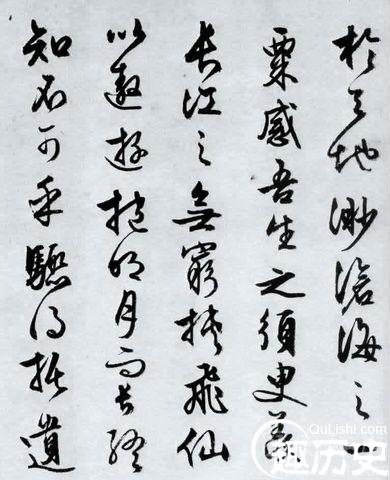 於天地渺滄海之一
粟感吾生之須臾羨
長江之無窮挾飛仙
以遨遊抱明月而長終
知不可乎驟得托遺
QuLishi.com
趣历史